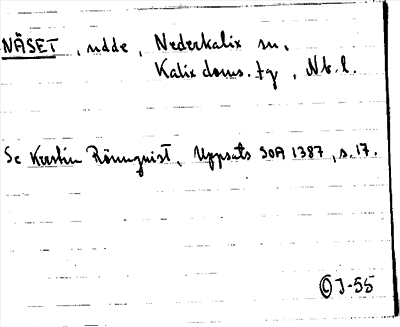 NÄSET, udde, Nederkalix sn,
Kalix doms. tg, Nb. l.
Se Kerstin Rönnquist, Uppsats SOA 1387, s. 17.
© J-55